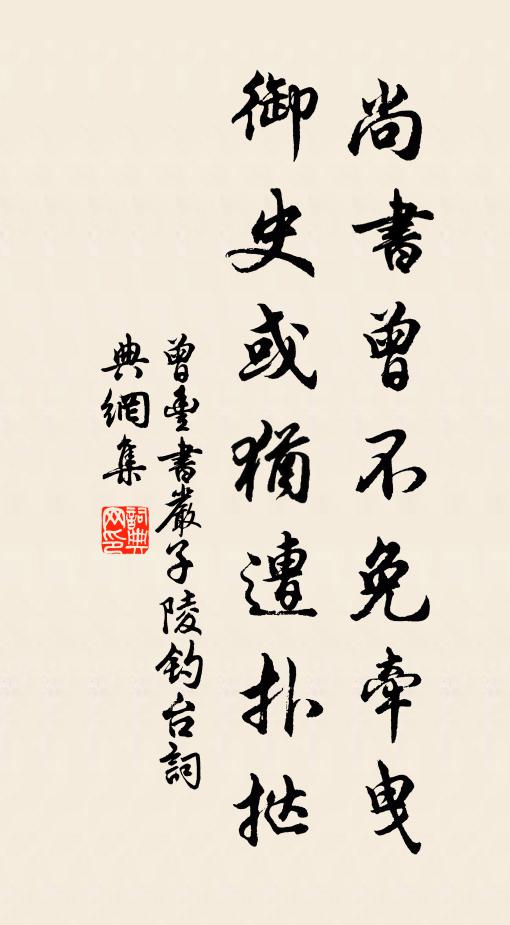 尚書曾不免牽曳
御史或猶遭扑挞
曾豐書嚴子陵釣台詞
典網集
詞典
网印